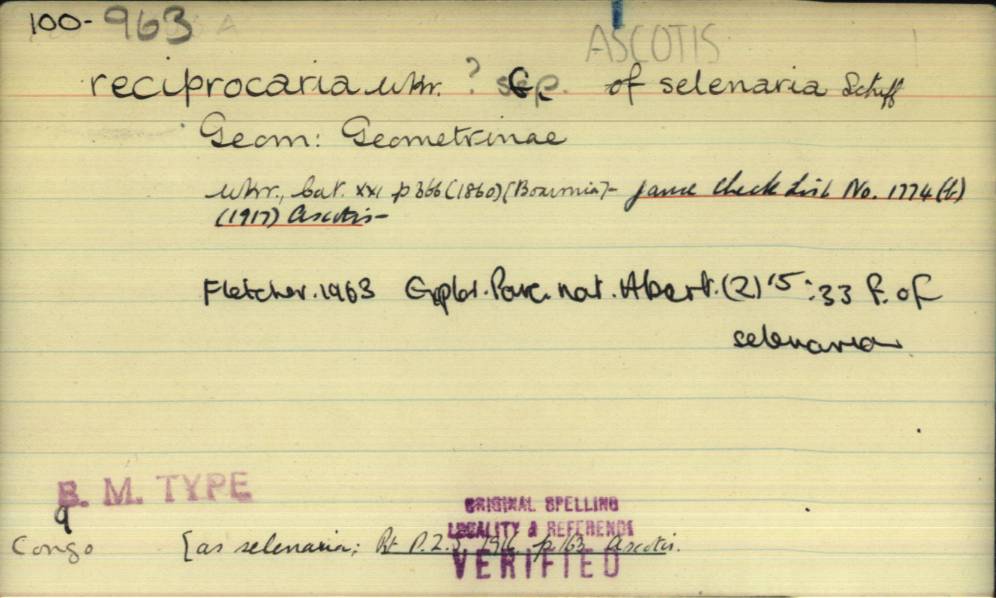 100-963
ASCOTIS
reciprocaria Wkr. ? ssp. of selenaria Schiff
Geom: Geometrinae
Wkr., Cat. xxi p 366 (1860) [Boarmia]- Janse Check List No. 1774 (b)
(1917) Ascotis-
Fletcher. 1963 Explor. Parc. nat. Albert. (2) 15 : 33 f. of
selenaria
B. M. TYPE
ORIGINAL SPELLING
LOCALITY & REFERENCE
Congo [as selenaria; P.Z.S. p 163 Ascotis.
VERIFIED